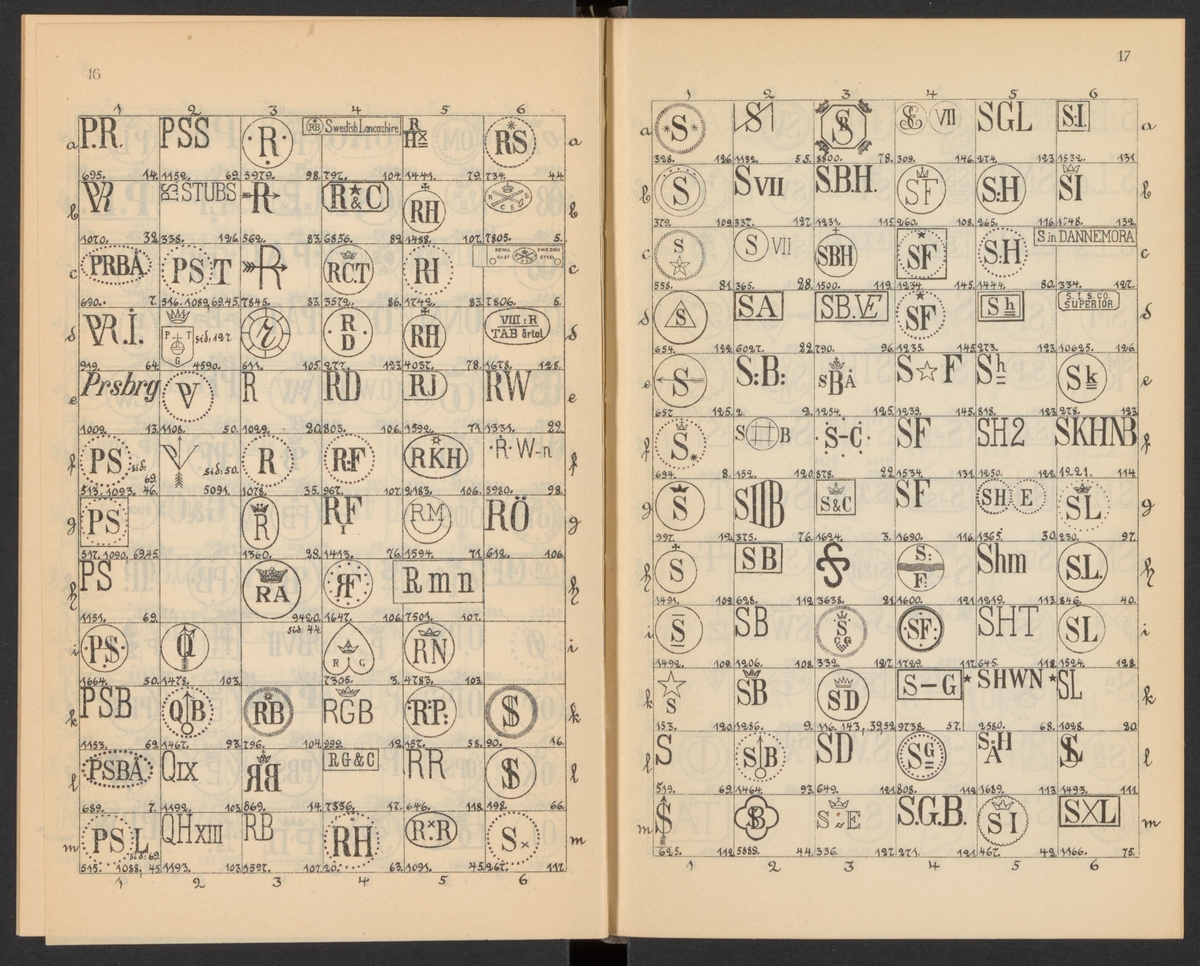 16
1 2 3 4 5 6
a P.R. PSS ·R· RB Swedish Lancashire R HX RS a
695. 14. 1152. 69. 5979. 98. 797. 104. 1441. 79. 734. 44
b VR STUBS R R&C RH RCSDS b
1070. 32. 338. 126. 562. 83. 6856. 89. 1488. 107. 7805. 5.
c PRBÄ PST R RCT RI ROYAL CAST SWEDISH STEEL c
690. 7. 516. 1089. 69.45. 7845. 83. 3572. 86. 1742. 83. 7806. 5.
d VR.I. P T G sid. 127. R R D RH VIII:R TAB årtal d
919. 64. 4590. 611. 105. 277. 123. 4037. 78. 1678. 128.
e Prsbrg V R RD RJ RW e
1009. 13. 1108. 50. 1029. 20. 803. 106. 1592. 71. 1331. 22.
f PS sid. 69. sid. 50. R R:F RKH ·R·W-n f
513. 1093. 46. 5091. 1078. 35. 967. 107. 2183. 106. 5980. 98.
g PS R RF I RM RÖ g
517. 1090. 69.45. 1360. 28. 1413. 76. 1594. 71. 612. 106.
h PS RA RF Rmn h
1151. 69. 9420. sid. 44. 1647. 106. 7501. 107.
i ·P.S· Q R G RN i
1664. 50. 1478. 103. 7305. 3. 4783. 103.
k PSB QB RB RGB R:P: S k
1153. 69. 1467. 93. 796. 104. 999. 12. 157. 58. 90. 16.
l PSBÄ QIX RB RG&C RR S l
689. 7. 1192. 103. 869. 14. 7336. 17. 646. 118. 198. 66.
m PS:L sid. 69. QHXIII RB RH R×R S× m
515. 1088. 45. 1193. 103. 1597. 107. 20. 63. 1091. 45. 267. 117.
1 2 3 4 5 6
17
1 2 3 4 5 6
a *S* S S SE VII SGL S.I. a
328. 126. 1132. 55. 8800. 78. 309. 146. 274. 123. 1532. 131.
b S SVII S.B.H. SF S:H SI b
379. 109. 337. 127. 1231. 115. 260. 108. 265. 116. 1548. 132.
c S S VII SBH SF S.H S in DANNEMORA c
558. 81. 365. 28. 1500. 119. 1234. 145. 1444. 80. 334. 127.
d S SA SB.VÆ SF Sh S. I. S. CO. SUPERIOR d
654. 122. 6027. 22. 790. 96. 1233. 145. 273. 123. 10625. 126.
e S S:B: SBÅ S☆F Sh Sk e
657. 125. 2. 9. 1254. 125. 1239. 145. 818. 123. 278. 123
f S S B ·S-C· SF SH2 SKHNB f
694. 8. 152. 120. 878. 22. 1534. 131. 1250. 122. 1221. 114
g S SIIB S&C SF SH E SL g
997. 12. 375. 76. 1624. 3. 1690. 116. 1365. 30. 230. 97.
h S SB S S: F: Shm S.L. h
1491. 109. 628. 112. 3638. 21. 1600. 121. 1219. 113. 846. 40.
i S SB S CG ·SF· SHT SL i
1492. 109. 1206. 108. 332. 127. 1729. 117. 645. 118. 1524. 128.
k S SB SD S–G *SHWN* SL k
153. 120. 1286. 9. 116. 143, 3952. 9738. 57. 2580. 68. 1028. 20.
l S S B SD SG S·H Å SL l
519. 69. 1464. 93. 649. 121. 808. 112. 1689. 113. 1493. 111.
m S SB S:~E S.G.B. SI SXL m
625. 112. 5889. 44. 336. 127. 271. 121. 467. 42. 1166. 75.
1 2 3 4 5 6